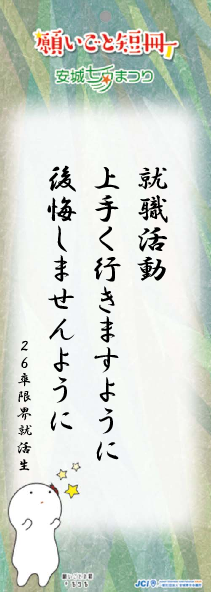 願いごと短冊
安城七夕まつり
就職活動
上手く行きますように
後悔しませんように
26卒限界就活生
JCI